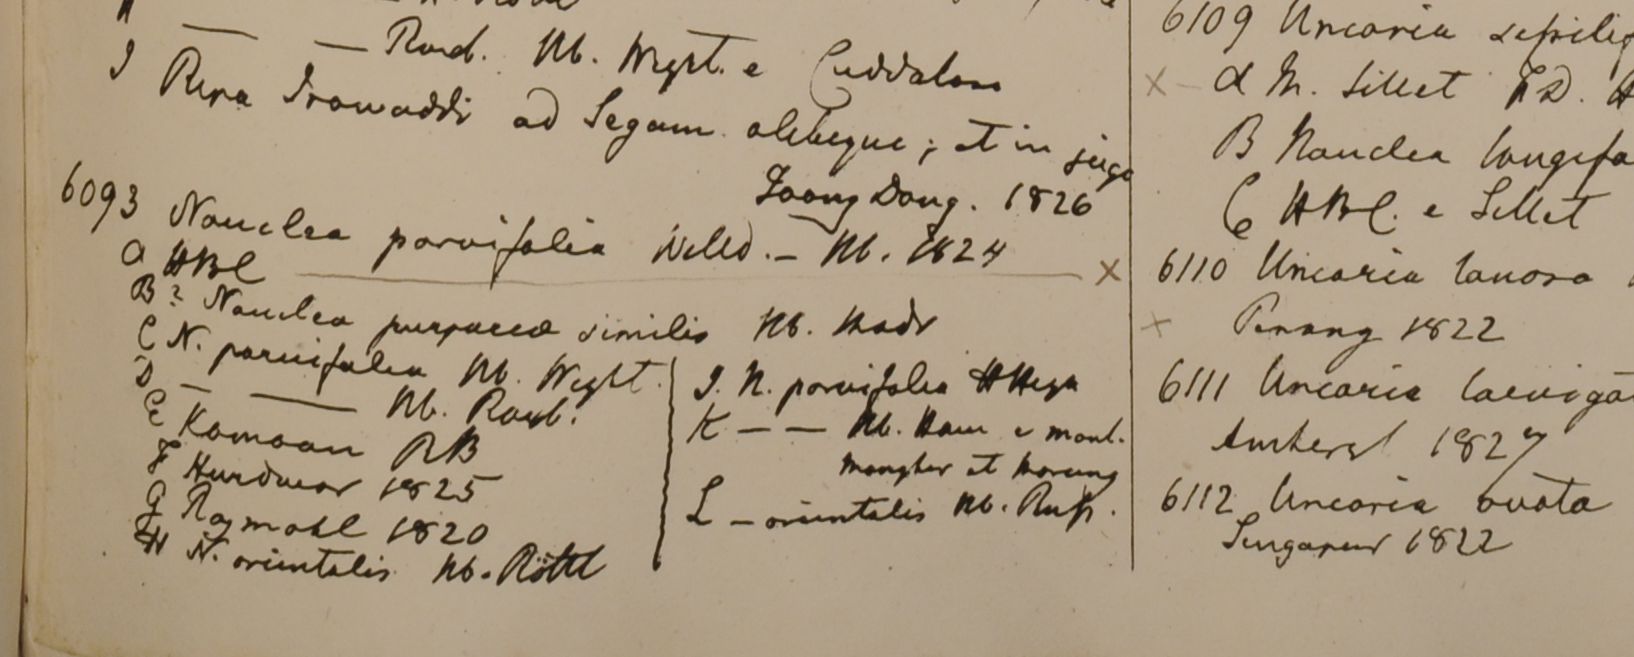 — — Roxb. Hb. Wight. e Cuddalore
I Ripa Irawaddi ad Segain alibique; et in juga
Taong Dong. 1826
6093 Nauclea parvifolia Willd. – Hb. 1824
a HBC x
B? Nauclea purpureæ similis Hb. Madr
C N. parvifolia Hb. Wight.
D — — Hb. Roxb.
E Kamaon RB
F Hurdwar 1825
G Rajmahl 1820
H N. orientalis Hb. Röttl
I. N. parvifolia HHeyn
K — — Hb. Ham e mont.
Mongher et Morung
L – orientalis Hb. Russ.
6109 Uncaria sessilif
x – a M. Sillet FD.
B Nauclea longifo
C HBC. e Sillet
6110 Uncaria lanosa
x Penang 1822
6111 Uncaria laeviga
Amherst 1827
6112 Uncaria ovata
Singapur 1822